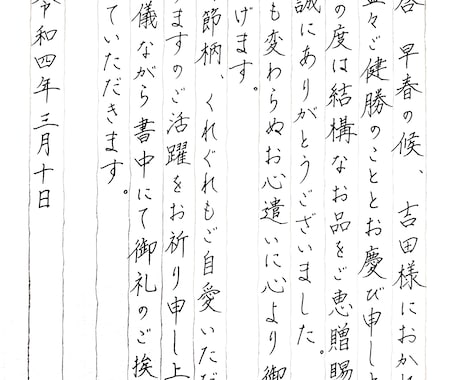 早春の候、 吉田様におか
益々ご健勝のこととお慶び申し
の度は結構なお品をご恵贈賜
誠にありがとうございました。
も変わらぬお心遣いに心より御
げます。
節柄、くれぐれもご自愛いただ
ますのご活躍をお祈り申し上
儀ながら書中にて御礼のご挨
ていただきます。
令和四年三月十日